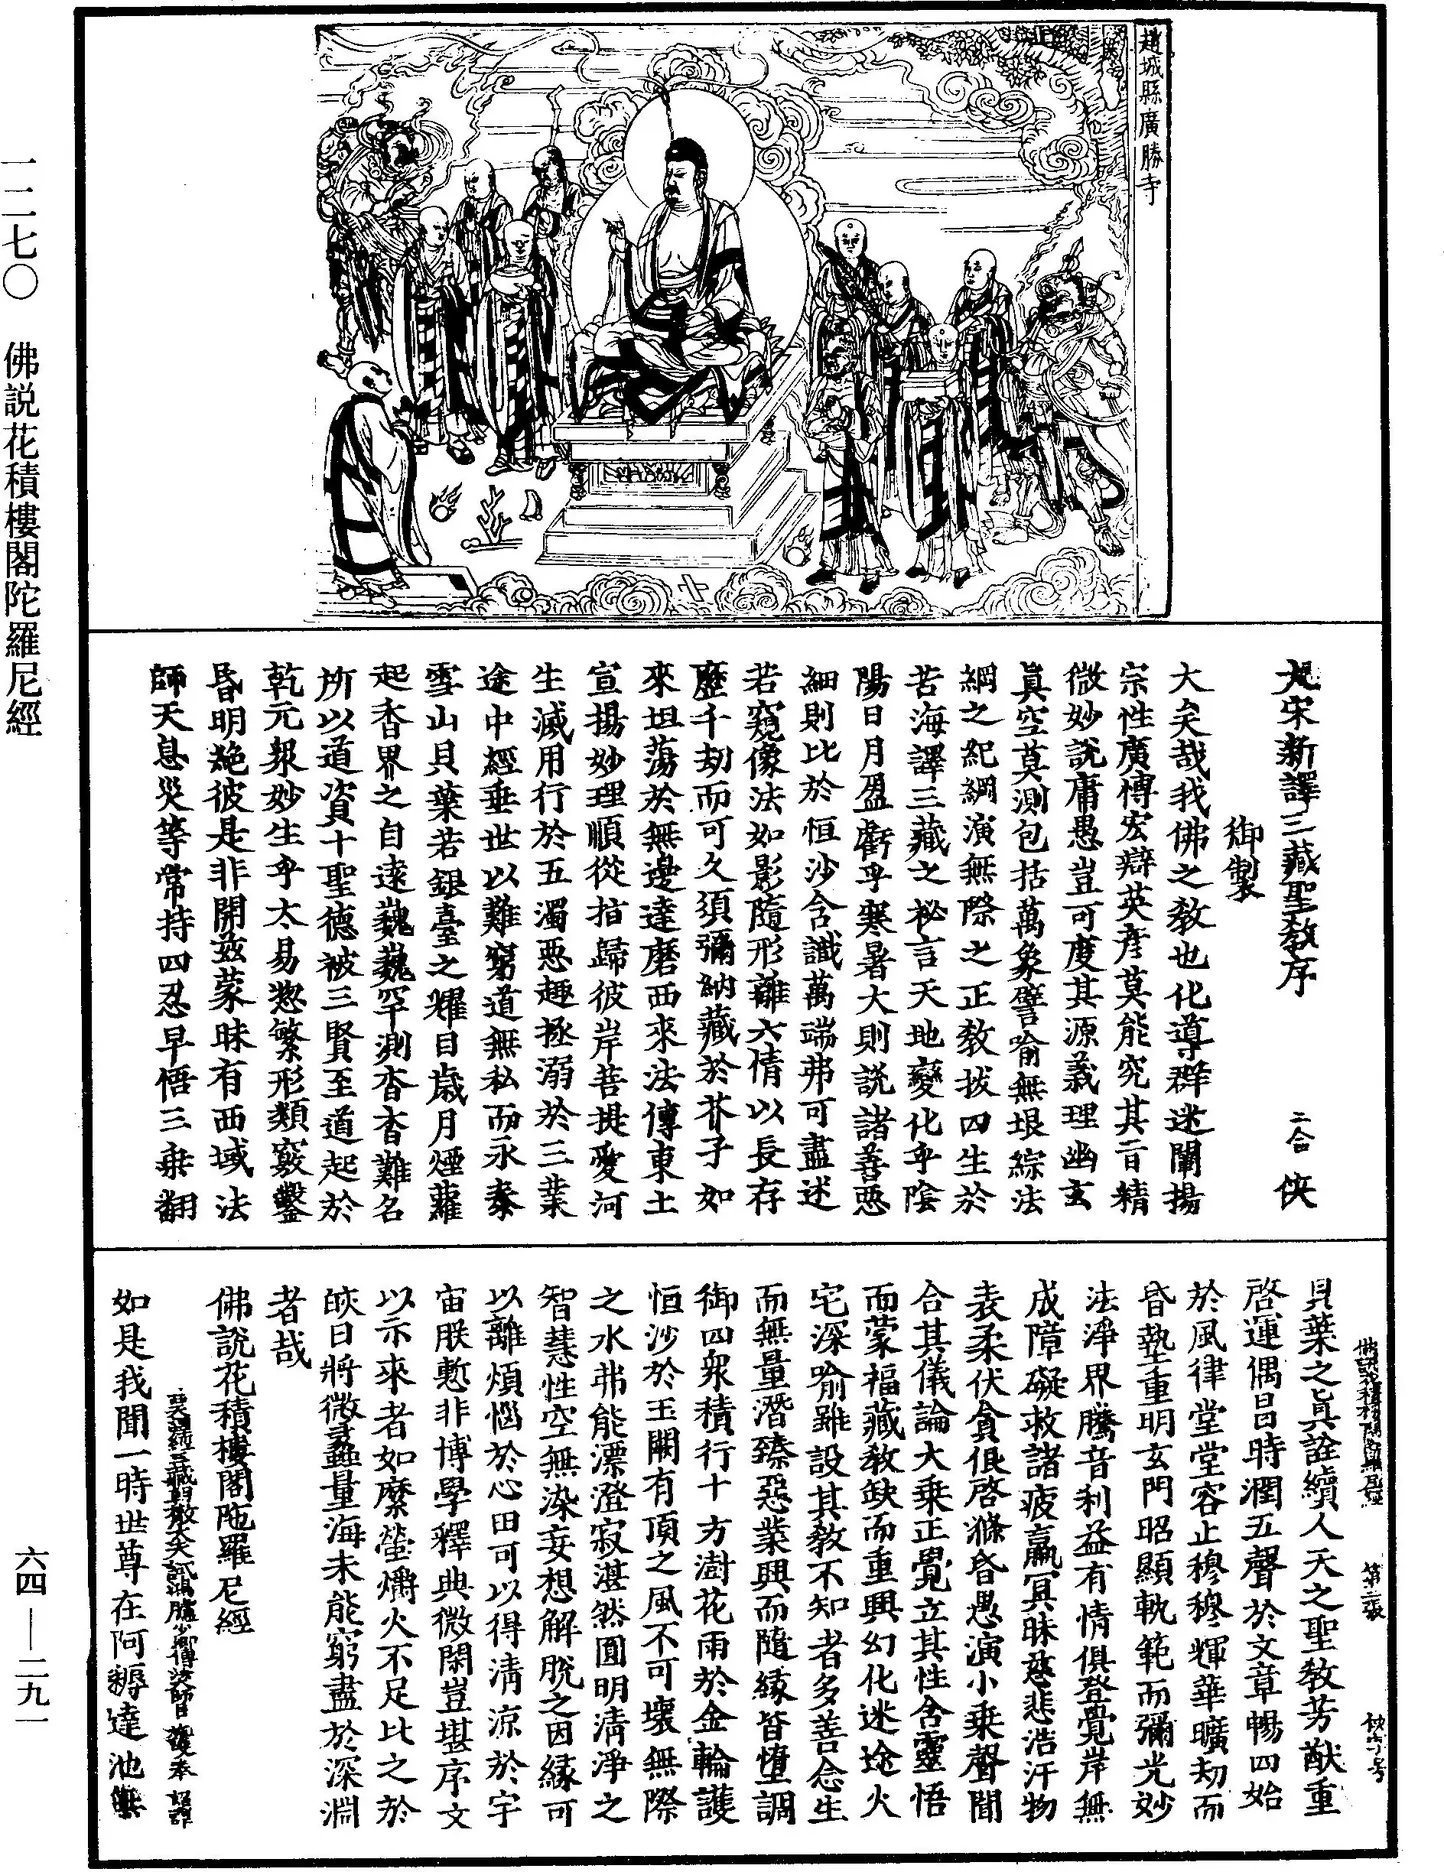 趙城縣廣勝寺
大宋新譯三藏聖教序 二合 俠
御製
大矣哉我佛之教也化導群迷闡揚
宗性廣博宏辯英彥莫能究其旨精
微妙說庸愚豈可度其源義理幽玄
真空莫測包括萬象譬喻無垠綜法
網之紀綱演無際之正教拔四生於
苦海譯三藏之祕言天地變化乎陰
陽日月盈虧乎寒暑大則說諸善惡
細則比於恒沙含識萬端弗可盡述
若窺像法如影隨形離六情以長存
歷千劫而可久須彌納藏於芥子如
來坦蕩於無邊達磨西來法傳東土
宣揚妙理順從指歸彼岸菩提愛河
生滅用行於五濁惡趣拯溺於三業
途中經垂世以難窮道無私而永泰
雪山貝葉若銀臺之耀目歲月煙蘿
起香界之自遠巍巍罕測杳杳難名
所以道資十聖德被三賢至道起於
乾元眾妙生乎太易惣繁形類竅鑿
昏明絕彼是非開茲蒙昧有西域法
師天息災等常持四忍早悟三乘翻
佛說花積樓閣陀羅尼經 第二張 俠字号
貝葉之真詮續人天之聖教芳猷重
啓運偶昌時潤五聲於文章暢四始
於風律堂堂容止穆穆輝華曠劫而
昏墊重明玄門昭顯軌範而彌光妙
法淨界騰音利益有情俱登覺岸無
成障礙救諸疲羸冥昧慈悲浩汗物
表柔伏貪佷啓滌昏愚演小乘聲聞
合其儀論大乘正覺立其性含靈悟
而蒙福藏教缺而重興幻化迷途火
宅深喻雖設其教不知者多善念生
而無量潛臻惡業興而隨緣皆墮調
御四眾積行十方澍花雨於金輪護
恒沙於玉闕有頂之風不可壞無際
之水弗能漂澄寂湛然圓明清淨之
智慧性空無染妄想解脫之因緣可
以離煩惱於心田可以得清涼於宇
宙朕慙非博學釋典微閑豈堪序文
以示來者如縻螢爝火不足比之於
皎日將微蠡量海未能窮盡於深淵
者哉
佛說花積樓閣陀羅尼經
如是我聞一時世尊在阿耨達池無
一二七〇 佛說花積樓閣陀羅尼經
六四—二九一